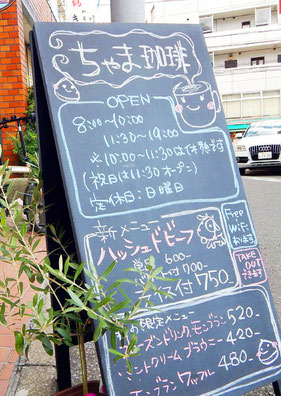 ちゃま珈琲
OPEN
8:00〜10:00
11:30〜19:00
※10:00〜11:30は
(祝日は11:30オープン)
定休日:日曜日
新メニュー
ハッシュドビーフ
600-
700-
付 750
Free
Wi-Fi
あります
TAKE
OUT
できます
限定メニュー
ドリンク モンブラン 520-
ミントクリームブラウニー 420-
モンブランワッフル 480-